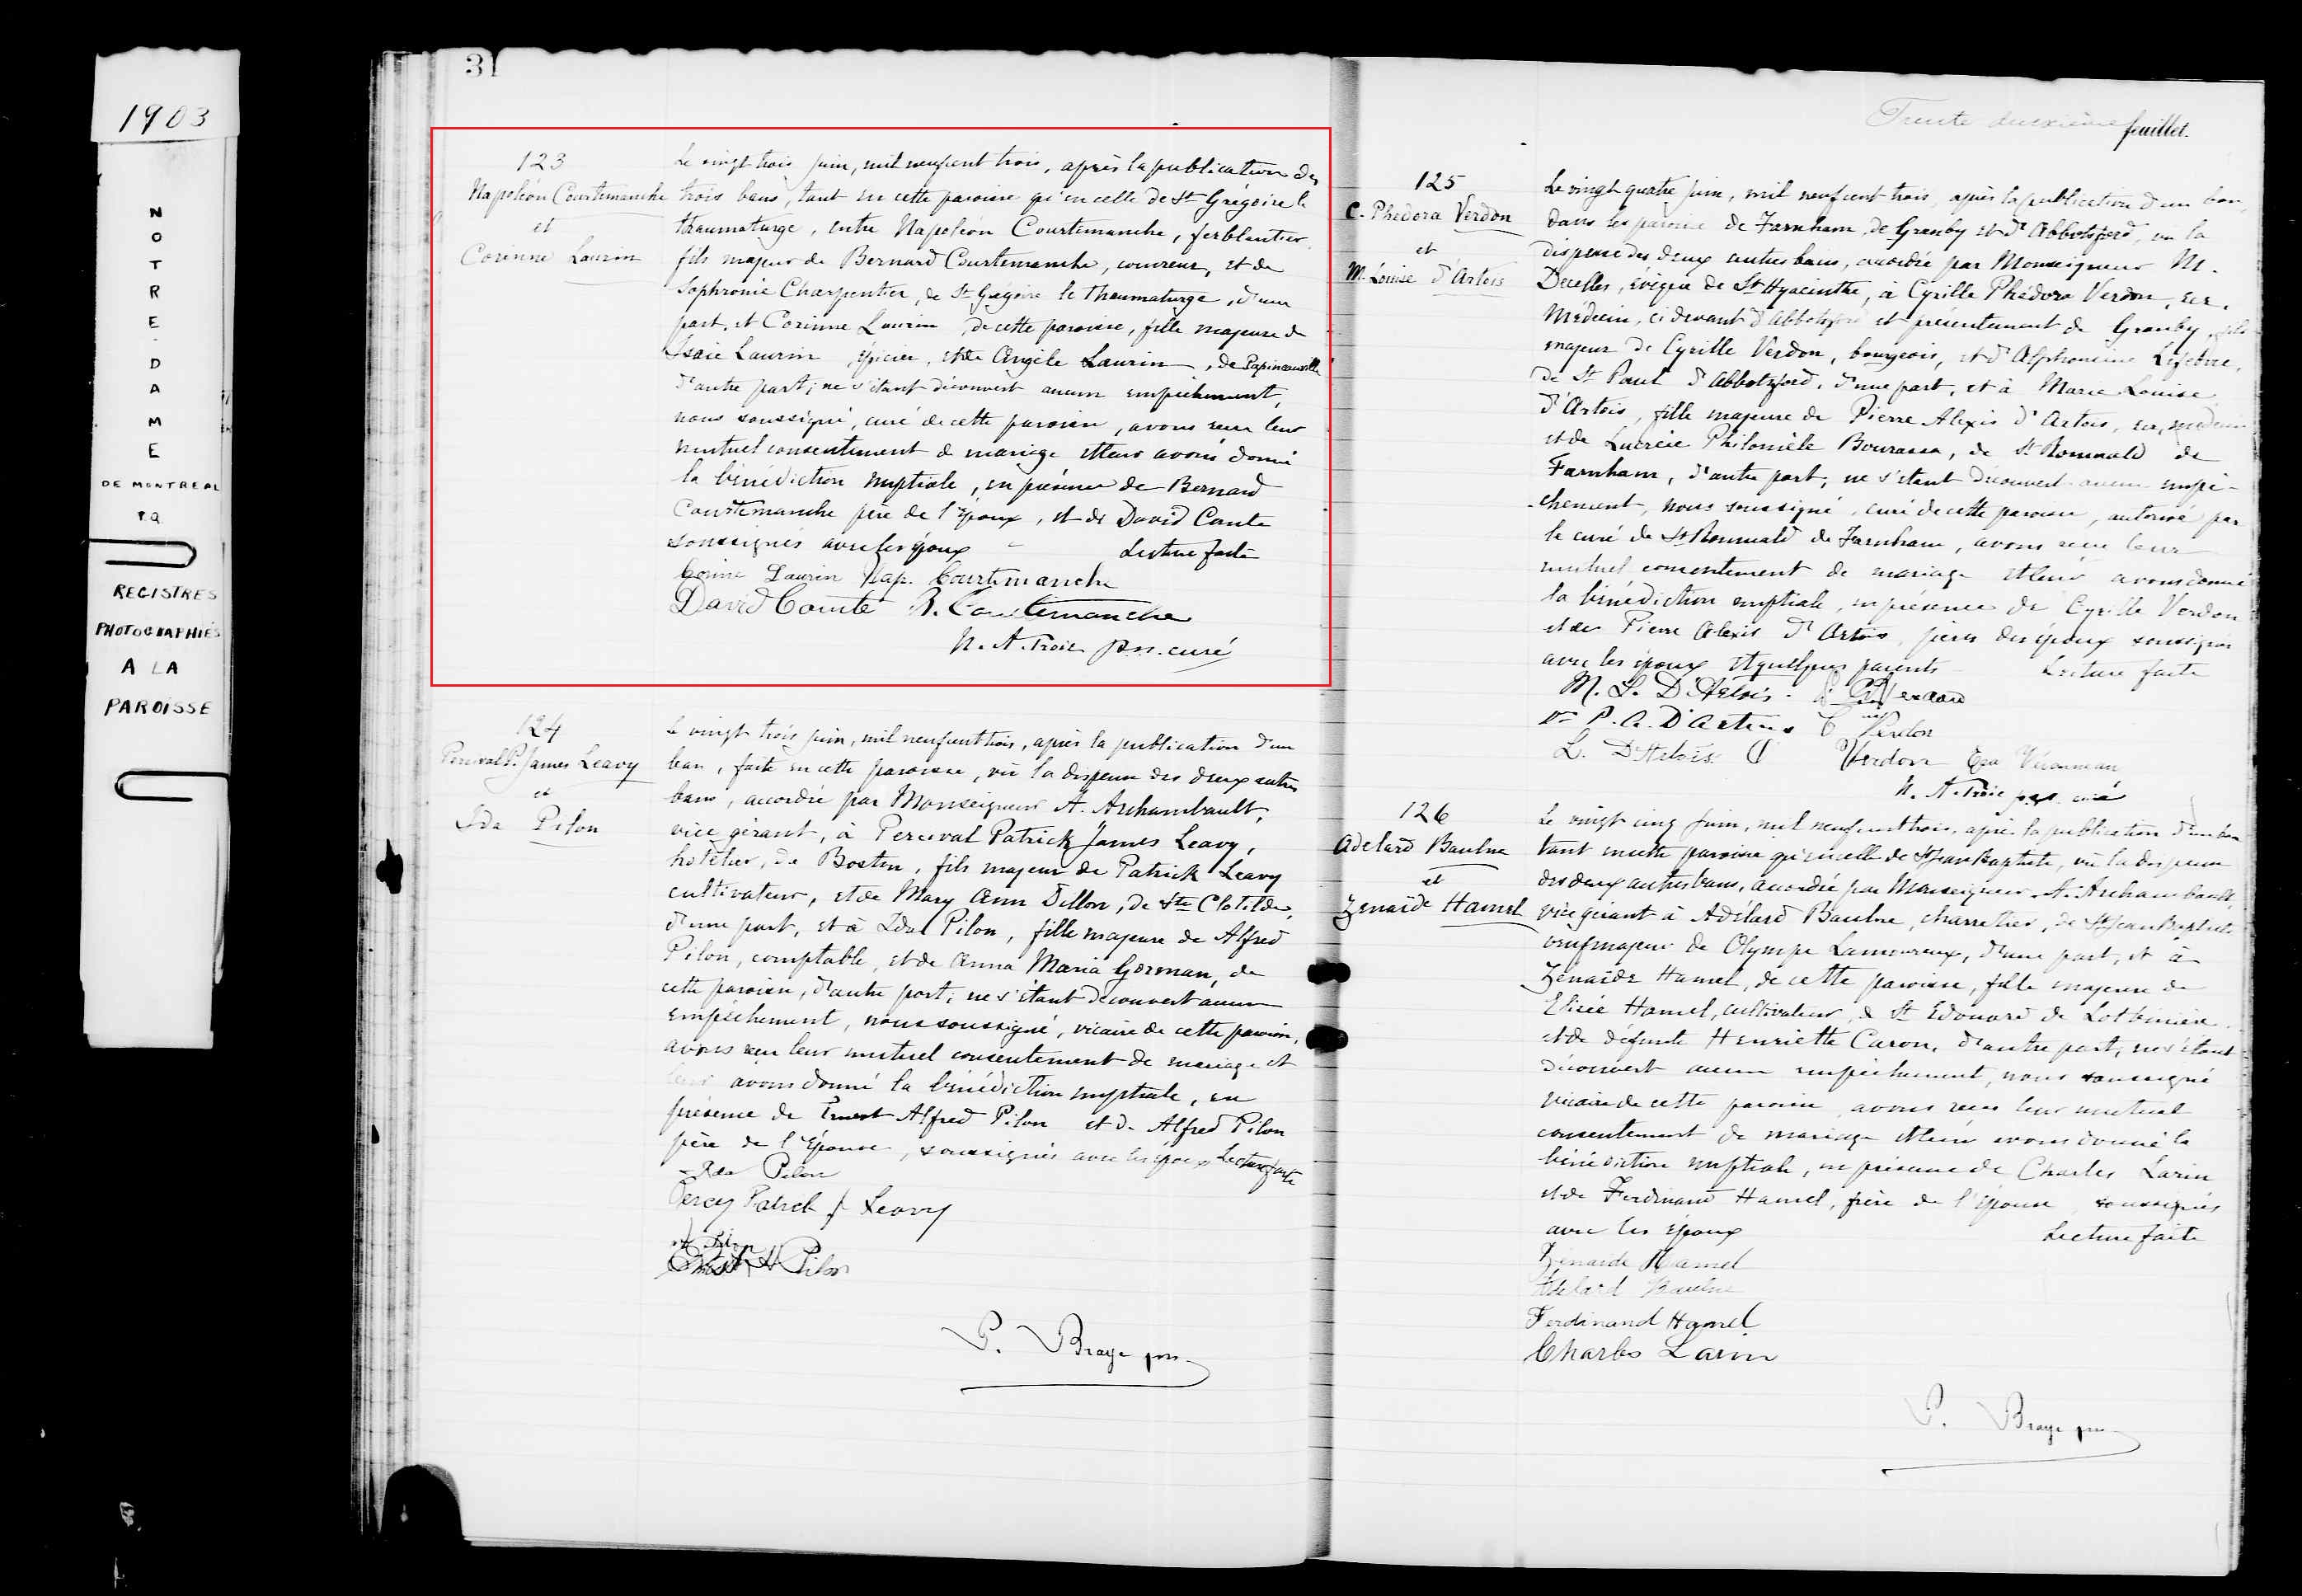 1903
NOTRE-DAME
DE MONTREAL
P.Q.
REGISTRES
PHOTOGRAPHIÉS
A LA
PAROISSE
31
123
Napoléon Courtemanche
et
Corinne Laurin
Le vingt trois juin, mil neuf cent trois, après la publication des
trois bans, tant en cette paroisse qu'en celle de St Grégoire le
thaumaturge, entre Napoléon Courtemanche, ferblantier,
fils majeur de Bernard Courtemanche, couvreur, et de
Sophronie Charpentier, de St Grégoire le Thaumaturge, d'une
part, et Corinne Laurin, de cette paroisse, fille majeure de
Isaïe Laurin, épicier, et de Angèle Laurin, de Papineauville
d'autre part; ne s'étant découvert aucun empêchement,
nous soussigné, curé de cette paroisse, avons reçu leur
mutuel consentement de mariage et leur avons donné
la bénédiction nuptiale, en présence de Bernard
Courtemanche père de l'époux, et de David Comte
soussignés avec les époux - Lecture faite
Corinne Laurin Nap. Courtemanche
David Comte B. Courtemanche
N. A. Troie p.s.s. curé
124
Perceval P. James Leavy
et
Ida Pilon
Le vingt trois juin, mil neuf cent trois, après la publication d'un
ban, faite en cette paroisse, vu la dispense des deux autres
bans, accordée par Monseigneur A. Archambault,
vice gérant, à Perceval Patrick James Leavy,
hôtelier, de Boston, fils majeur de Patrick Leavy
cultivateur, et de Mary Ann Dillon, de Ste Clotilde,
d'une part, et à Ida Pilon, fille majeure de Alfred
Pilon, comptable, et de Anna Maria Gorman, de
cette paroisse, d'autre part; ne s'étant découvert aucun
empêchement, nous soussigné, vicaire de cette paroisse,
avons reçu leur mutuel consentement de mariage et
leur avons donné la bénédiction nuptiale, en
présence de Ernest Alfred Pilon et de Alfred Pilon
père de l'épouse, soussignés avec les époux Lecture faite
Ida Pilon
Percy Patrick J Leavy
A Pilon
Ernest A Pilon
P. Braye pss
Trente deuxième feuillet.
125
C. Phédora Verdon
et
M. Louise d'Artois
Le vingt quatre juin, mil neuf cent trois, après la publication d'un ban,
dans les paroisses de Farnham, de Granby et d'Abbotsford, vu la
dispense des deux autres bans, accordée par Monseigneur M.
Decelles, évêque de St Hyacinthe, à Cyrille Phédora Verdon, Ecr,
Médecin, ci devant d'Abbotsford et présentement de Granby, fils
majeur de Cyrille Verdon, bourgeois, et d'Alphonsine Lefebvre,
de St Paul d'Abbotsford, d'une part, et à Marie Louise
d'Artois, fille majeure de Pierre Alexis d'Artois, Ecr, médecin
et de Lucrèce Philomèle Bourassa, de St Romuald de
Farnham, d'autre part; ne s'étant découvert aucun empê-
-chement, nous soussigné, curé de cette paroisse, autorisé par
le curé de St Romuald de Farnham, avons reçu leur
mutuel consentement de mariage et leur avons donné
la bénédiction nuptiale, en présence de Cyrille Verdon
et de Pierre Alexis d'Artois, pères des époux soussignés
avec les époux et quelques parents Lecture faite
M. L. D'Artois
Dr P. A. D'Artois C Verdon
L. D'Artois Verdon
N. A. Troie p.s.s. curé
126
Adelard Baulne
et
Zénaïde Hamel
Le vingt cinq juin, mil neuf cent trois, après la publication d'un ban
tant en cette paroisse qu'en celle de St Jean Baptiste, vu la dispense
des deux autres bans, accordée par Monseigneur A. Archambault,
vice gérant à Adélard Baulne, charretier, de St Jean Baptiste
veuf majeur de Olympe Lamoureux, d'une part, et à
Zénaïde Hamel, de cette paroisse, fille majeure de
Elisée Hamel, cultivateur, de St Edouard de Lotbinière
et de défunte Henriette Caron, d'autre part, ne s'étant
découvert aucun empêchement, nous soussigné
vicaire de cette paroisse avons reçu leur mutuel
consentement de mariage et leur avons donné la
bénédiction nuptiale, en présence de Charles Larin
et de Ferdinand Hamel, frère de l'épouse, soussignés
avec les époux Lecture faite
Zénaïde Hamel
Adelard Baulne
Ferdinand Hamel
Charles Larin
P. Braye pss